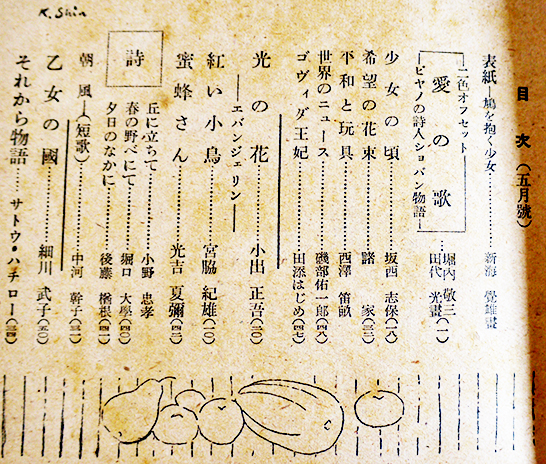 K. Shin
目次（五月號）
表紙―鳩を抱く少女……新海 覺雄畫
―二色オフセット―
愛の歌……堀内 敬三（一）
田代 光畫
―ピヤノの詩人ショパン物語―
少女の頃……坂西 志保（一八）
希望の花束……諸家（三二）
平和と玩具……西澤 笛畝
世界のニュース……磯部佑一郎（四六）
ゴヴィダ王妃……田添はじめ（四七）
光の花……小出 正吾（二〇）
―エバンジェリン―
紅い小鳥……宮脇 紀雄（一〇）
蜜蜂さん……光吉 夏彌（四二）
詩
丘に立ちて……小野 忠孝
春の野べにて……堀口 大學（四〇）
夕日のなかに……後藤 楢根（四一）
朝風―（短歌）……中河 幹子（三一）
乙女の國……細川 武子（五〇）
それから物語……サトウ・ハチロー（三四）